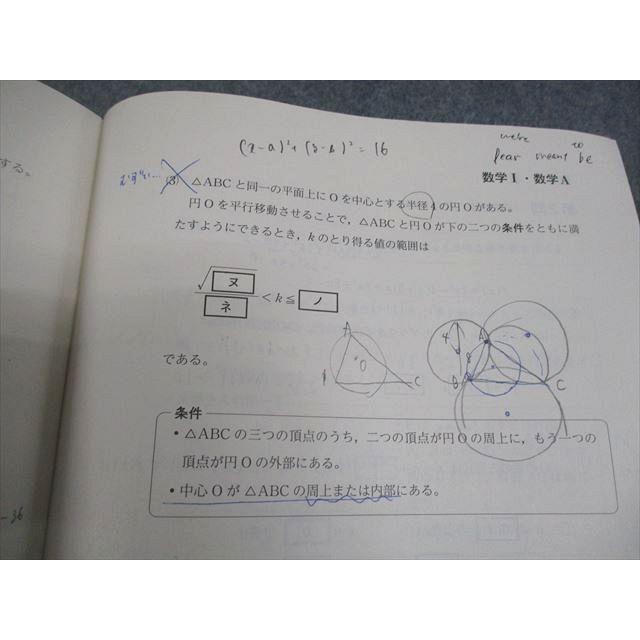 (x-a)²+(y-b)²=16
fear meant be
数学Ⅰ・数学A
する。
(3) △ABC と同一の平面上に O を中心とする半径 4 の円 O がある。
円 O を平行移動させることで，△ABC と円 O が下の二つの条件をともに満
たすようにできるとき，k のとり得る値の範囲は
√ヌ
ネ < k ≦ ノ
である。
A
O
B C
4
A
8
B C
条件
・△ABC の三つの頂点のうち，二つの頂点が円 O の周上に，もう一つの
頂点が円 O の外部にある。
・中心 O が △ABC の周上または内部にある。
-36